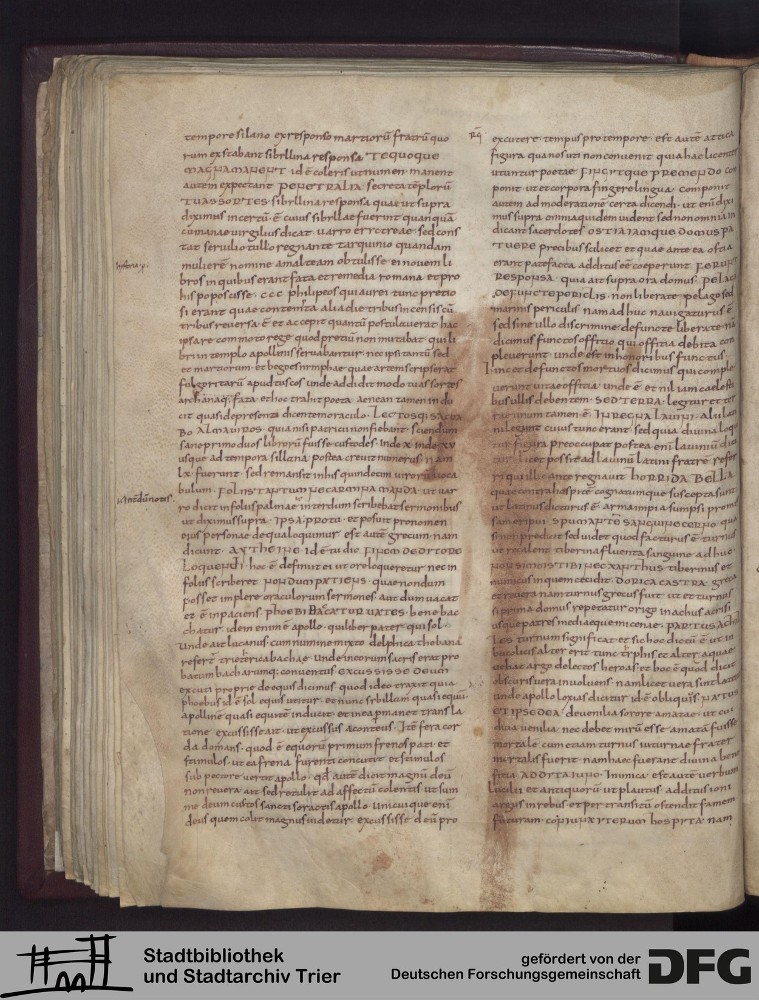 tempore silano ex responso martiorū fratrū quo
rum exstabant sibyllina responsa TE QUOQUE
MAGNA MANENT id ē coleris ut numen manent
autem expectant PENETRALIA secreta tēplorū
TUAS SORTES sibyllina responsa quae ut supra
diximus incertū ē cuius sibyllae fuerint quanquā
cumanae virgilius dicat varro erytreae sed cons
tat servio tullo regnante tarquinio quandam
mulierē nomine amalteam obtulisse ei novem li
bros in quibus erant fata et remedia romana et pro
his poposcisse ccc philipeos qui aurei tunc pretio
si erant quae contempta alia die tribus incensis cū
tribus reversa ē et accepit quantū postulaverat hac
ipsa re commoto rege quod pretiū non mutabat qui li
bri in templo apollinis servabantur nec ipsi tantū sed
et martiorum et begoes nimphae quae artem scripserat
fulgoritarū apud tuscos unde addidit modo tuas sortes
archanaq; fata et hoc trahit poeta aenean tamen indu
cit quasi de presenti dicentem oraculo LECTOSQ; SACRA
BO ALMA VIROS quia nisi patricii non fiebant sciendum
sane primo duos librorū fuisse custodes inde x inde xv
usque ad tempora sillana postea crevit numerus nam
lx fuerunt sed remansit in his quindecim virorū voca
bulum FOLIIS TANTUM NE CARMINA MANDA ut var
ro dicit in foliis palmae interdum scribebat sermonibus
ut diximus supra IPSA PROTU et posuit pronomen
eius personae de qua loquimur est autē grecum nam
dicunt AYTHE IPE id ē tu dic FINEM DE ORTORE
LOQUENDI hoc ē definivit ei ut ore loqueretur nec in
foliis scriberet NONDUM PATIENS quae nondum
posset implere oraculorum sermones aut dum vacat
et ē inpaciens PHOEBI BACATUR VATES bene bac
chatur idem enim ē apollo qui liber pater qui sol
unde ait lucanus cum numine mixto delphica thebanā
refert trieterica bachae unde in eorum sacris erat pro
batum bacharumq; conventus EXCUSSISSE DEUM
excuti proprie de equis dicimus quod ideo traxit quia
phoebus id ē sol equis utitur et nunc sybillam quasi equū
apolline quasi equitē inducit et in ea permanet transla
tione excussisse ait ut excussus aconteus Itē fera cor
da domans quod ē equorū primum frenos pati et
stimulos ut ea frena furenti concutit et stimulos
sub pectore vertit apollo qd autē dicit magnū deū
non re vera ait sed retulit ad affectū colentis ut sum
me deum custos sancti soractis apollo unicuique eni
deus quem colit magnus videtur excussisse deū pro
excutere tempus pro tempore est autē attica
figura qua nos uti non convenit quia hac licenter
utuntur poetae FINGITQUE PREMENDO com
ponit ut et corpora fingere lingua componit
autem ad moderationē certa dicendi ut eni dixi
mus supra omnia quidem vident sed non omnia in
dicant sacerdotes OSTIA IAMQUE DOMUS PA
TUERE precibus scilicet et quae ante ea ostia
erant patefacta additus eē coeperunt FERUNT
RESPONSA quia ait supra ora domus PELAGI
DEFUNCTE PERICLIS non liberate pelago sed
marinis periculis nam adhuc navigaturus ē
sed sine ullo discrimine defuncte liberate nā
dicimus functos offitio qui offitia debita com
pleverunt unde est in honoribus functus
hinc et defunctos mortuos dicimus qui comple
verunt vitae offitia unde ē et nil iam caelesti
bus ullis debentem SED TERRA legitur et ter
rarum tamen ē IN REGNA LAVINI alii lati
ni legunt cuius tunc erant sed quia divina loqui
tur figura preoccupat postea eni laviniū dici
tur licet possit ad laviniū latini fratrē refer
ri qui illic ante regnavit HORRIDA BELLA
quae contra hospitē cognatumque suscepta sunt
ut latinus dicturus ē arma impia sumpsi promis
sam eripui SPUMANTE SANGUINE CERNO qua
si non predicit sed videt quod facturus ē turnus
ut recalent tiberina fluenta sanguine adhuc
NON SIMOIS TIBI NEC XANTHUS tiberinus et
numicus in quem cecidit DORICA CASTRA greca
et re vera nam turnus grecus fuit ut et turnus
si prima domus repetatur origo inachus acrisi
usque patres mediaeque micenae PARTUS ACHIL
LES turnum significat et sic hoc dictū ē ut in
bucolicis alter erit tunc tiphis et altera quae
vehat argo delectos heroas et hoc ē quod dicit
obscuris vera involvens nam licet vera sint latent
unde apollo loxias dicitur id ē obliquus NATUS
ET IPSE DEA de venilia sorore amatae ut cui
diva venilia nec debet mirū esse amatā fuisse
mortale cum etiam turnus iuturnae frater
mortalis fuerit nam haec fuerant divina bene
ficia ADDITA IUNO inimica est autē verbum
lucilii et antiquorū ut plautus additus ioni
argus in rebus et per transitū ostendit famem
futuram CONIUNX ITERUM HOSPITA nam
Stadtbibliothek
und Stadtarchiv Trier
gefördert von der
Deutschen Forschungsgemeinschaft
DFG